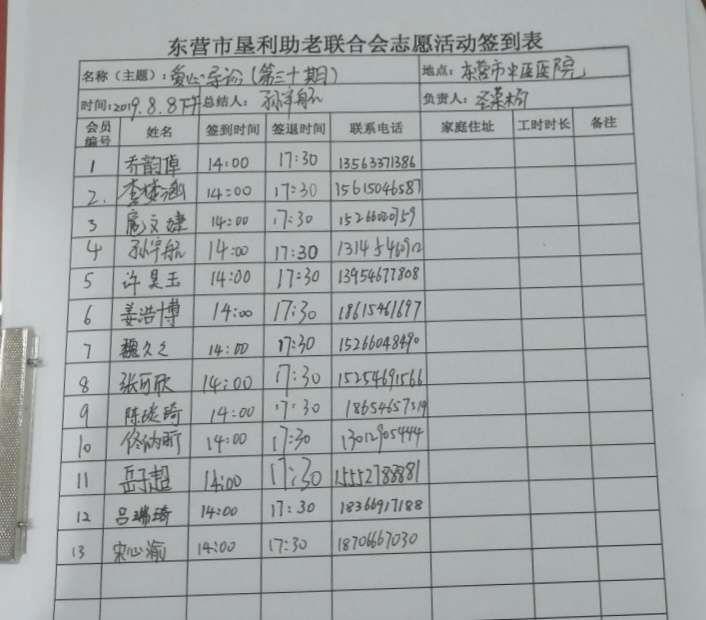 东营市垦利助老联合会志愿活动签到表
名称（主题）：爱心导诊（第三十期） 地点：东营市中医医院
时间：2019.8.8下午 总结人：孙宇航 负责人：
会员编号 姓名 签到时间 签退时间 联系电话 家庭住址 工时时长 备注
1 乔韵倬 14:00 17:30 13563371386
2. 李梦涵 14:00 17:30 15615046587
3 扈文婕 14:00 17:30
4 孙宇航 14:00 17:30
5 许昊玉 14:00 17:30 13954677808
6 姜浩博 14:00 17:30 18615461697
7 魏久久 14:00 17:30 15266048490
8 张可欣 14:00 17:30 15254691566
9 陈琰琦 14:00 17:30
10 14:00 17:30 13012905444
11 岳子超 14:00 17:30 15552788881
12 吕瑞琦 14:00 17:30 18366917188
13 宋心渝 14:00 17:30 18706667030